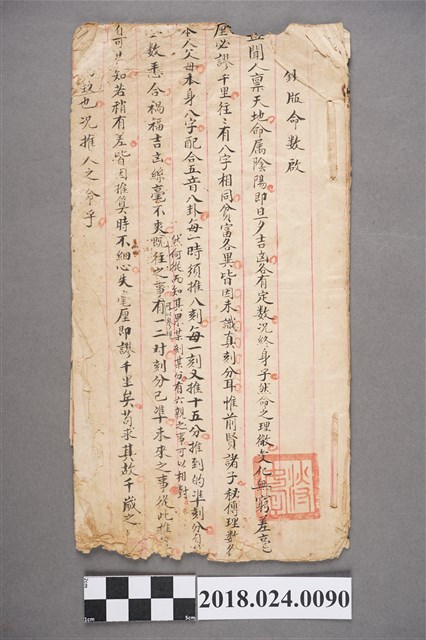 鉄版命数啟
盖聞人禀天地命属陰陽即旦夕吉凶各有定数况終身乎然命之理微文化無窮差毫
厘必謬千里往〻有八字相同貧富各異皆因未識真刻分耳惟前賢諸子秘傳理数
本人父母本身八字配合五音八卦每一時須推八刻每一刻又推十五分推到的準刻分
然何從而知其果某刻某分有六親之事可以相對
数悉合禍福吉凶絲毫不爽既往之事有一二时刻分已準未來之事從此推
可見知若稍有差皆因推算時不細心失之毫厘即謬千里矣苟求其故千歲之
也况推人之命乎
2018.024.0090
1cm
5cm